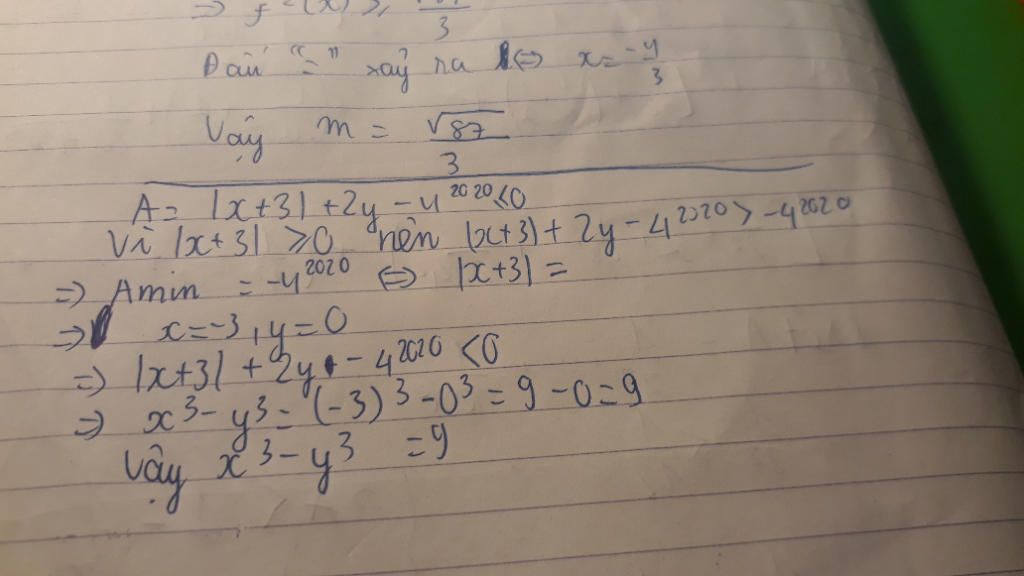 => f(x) ≥ 3
Dấu "=" xảy ra <=> x = -4/3
Vậy m = √87/3
A = |x+3| + 2y - 4^2020 < 0
Vì |x+3| ≥ 0 nên |x+3| + 2y - 4^2020 > -4^2020
=> Amin = -4^2020 <=> |x+3| =
=> x = -3, y = 0
=> |x+3| + 2y - 4^2020 < 0
=> x^3 - y^3 = (-3)^3 - 0^3 = 9 - 0 = 9
Vậy x^3 - y^3 = 9